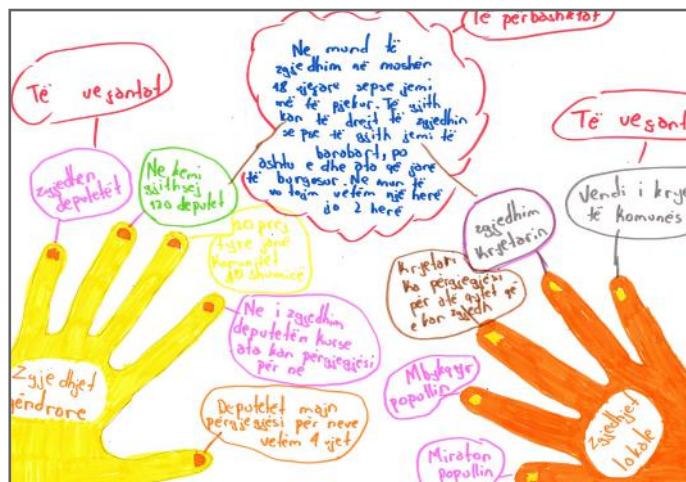 Të përbashktat
Ne mund të
zgjedhim në moshën
18 vjeçare sepse jemi
më të pjekur. Të gjith
kan të drejt të zgjedhin
se pse të gjith jemi të
barabart, po
ashtu e dhe pta që janë
të burgosur. Ne mun të
votojm vetëm një herë
jo 2 herë
Të veçantat
zgjedhen
deputetët
Ne kemi
gjithsej
120 deputet
20 prej
tyre janë
komunitet
jo shumicë
Ne i zgjedhim
deputetën kurse
ata kan përgjegjësi
për ne
Deputetët majn
përgjegjësi për neve
vetëm 4 vjet
Zgjedhjet
qëndrore
Të veçantat
Vendi i krye
të komunës
zgjedhim
kryetarin
Kryetari
ka përgjegjësi
për atë qytet që
e kan zgjedh
Mbykqyr
popullin
Miraton
popullin
Zgjedhjet
lokale